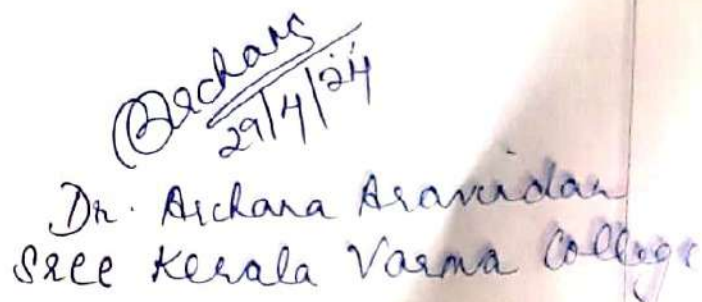 Archana
29/4/24
Dr. Archana Aravindan
Sree Kerala Varma College